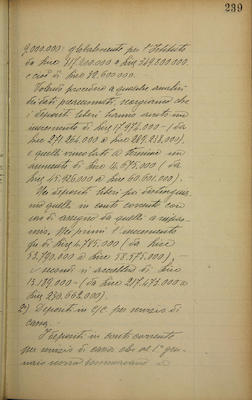 239
9.000.000: globalmente per l'Istituto
da lire 317.200.000 a lire 349.800.000
e cioè di lire 32.600.000.
Volendo procedere a qualche analisi
dei dati panoramici, scorgiamo che
i depositi liberi hanno avuto un
incremento di lire 17.974.000 - (da
lire 271.264.000 a lire 289.238.000),
e quelli vincolati a termine un
aumento di lire 14.675.000 (da
lire 45.926.000 a lire 60.601.000).
Nei depositi liberi poi distinguia
mo quelli in conto corrente con
casi di assegno da quelli a rispar-
mio. Nei primi l'incremento
fu di lire 4.785.000 (da lire
53.790.000 a lire 58.575.000),
i secondi si accrebbero di lire
13.189.000 - (da lire 217.473.000 a
lire 230.662.000).
2) Depositi in c/c per servizio di
cassa.
I depositi in conto corrente
per servizio di cassa che al 1° gen-
naio